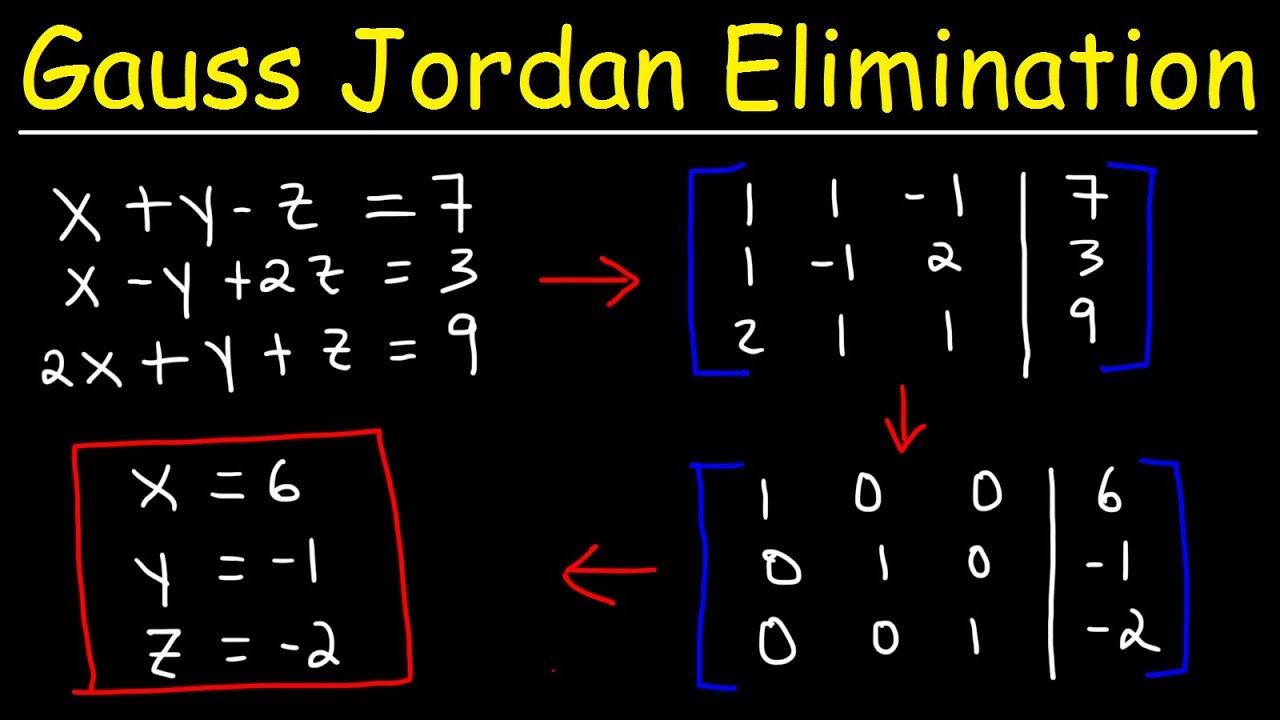 Gauss Jordan Elimination
x + y - z = 7
x - y + 2z = 3
2x + y + z = 9
1 1 -1 | 7
1 -1 2 | 3
2 1 1 | 9
x = 6
y = -1
z = -2
1 0 0 | 6
0 1 0 | -1
0 0 1 | -2